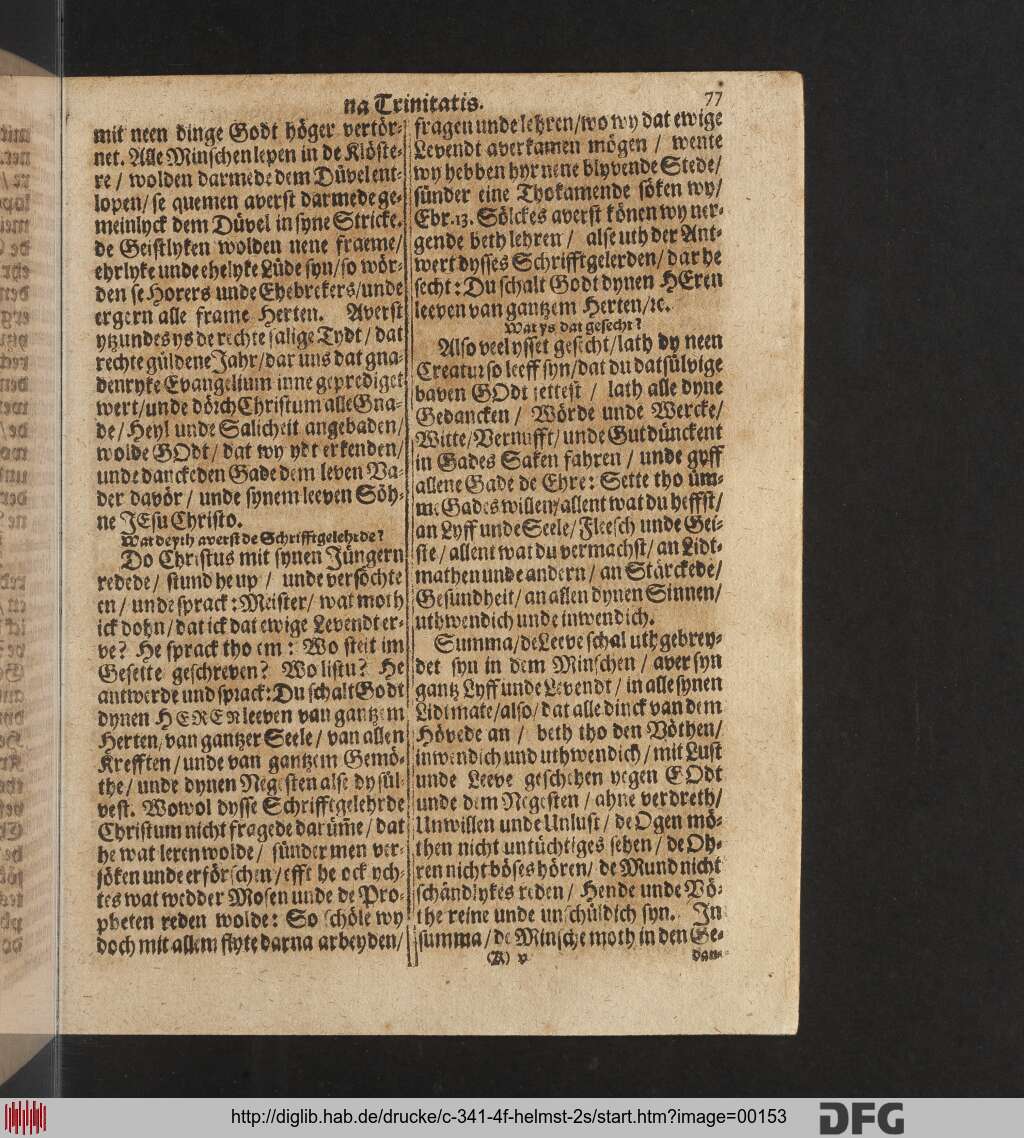 na Trinitatis.
77
mit neen dinge Godt höger vertör-
net. Alle Minschen lepen in de Klöste-
re / wolden darmede dem Düvel ent-
lopen / se quemen averst darmede ge-
meinlyck dem Düvel in syne Stricke.
de Geistlyken wolden nene fraeme /
ehrlyke unde ehelyke Lüde syn / so wör-
den se Horers unde Ehebrekers / unde
ergern alle frame Herten. Averst
ytzundes ys de rechte salige Tydt / dat
rechte güldene Jahr / dar uns dat gna-
denryke Evangelium inne geprediget
wert / unde dörch Christum alle Gna-
de / Heyl unde Salicheit angebaden /
wolde GOdt / dat wy ydt erkenden /
unde danckeden Gade dem leven Va-
der davör / unde synem leeven Söh-
ne JEsu Christo.
Wat deyth averst de Schrifftgelehrde?
Do Christus mit synen Jüngern
redede / stund he up / unde versöchte
en / unde sprack: Meister / wat moth
ick dohn / dat ick dat ewige Levendt er-
ve? He sprack tho em: Wo steit im
Gesette geschreven? Wo listu? He
antwerde und sprack: Du schalt Godt
dynen HEREN leeven van gantzem
Herten, van gantzer Seele / van allen
Krefften / unde van gantzem Gemö-
the / unde dynen Negesten alse dy sül-
vest. Wowol dysse Schrifftgelehrde
Christum nicht fragede darüm̃e / dat
he wat leren wolde / sünder men ver-
söken unde erförschen / efft he ock ych-
tes wat wedder Mosen unde de Pro-
pheten reden wolde: So schöle wy
doch mit allem flyte darna arbeyden /
fragen unde lehren / wo wy dat ewige
Levendt averkamen mögen / wente
wy hebben hyr nene blyvende Stede /
sünder eine Thokamende söken wy /
Ebr. 13. Sölckes averst könen wy ner-
gende beth lehren / alse uth der Ant-
wert dysses Schrifftgelerden / dar he
secht: Du schalt Godt dynen HEren
leeven van gantzem Herten / ꝛc.
Wat ys dat gesecht?
Also veel ysset gesecht / lath dy neen
Creatur so leeff syn / dat du datsülvige
baven GOdt settest / lath alle dyne
Gedancken / Wörde unde Wercke /
Witte / Vernufft / unde Gutdünckent
in Gades Saken fahren / unde gyff
allene Gade de Ehre: Sette tho üm-
me Gades willen / allent wat du heffst /
an Lyff unde Seele / Fleesch unde Gei-
ste / allent wat du vermachst / an Lidt-
mathen unde andern / an Stärckede /
Gesundheit / an allen dynen Sinnen /
uthwendich unde inwendich.
Summa / de Leeve schal uthgebrey-
det syn in dem Minschen / aver syn
gantz Lyff unde Levendt / in alle synen
Lidtmate / also / dat alle dinck van dem
Hövede an / beth tho den Vöthen /
inwendich und uthwendich / mit Lust
unde Leeve geschehen yegen GOdt
unde dem Negesten / ahne verdreth /
Unwillen unde Unlust / de Ogen mö-
then nicht untüchtiges sehen / de Oh-
ren nicht böses hören / de Mund nicht
schändlykes reden / Hende unde Vö-
the reine unde unschüldich syn. In
summa / de Minsche moth in den Ge-
(K) v
dan-
http://diglib.hab.de/drucke/c-341-4f-helmst-2s/start.htm?image=00153
DFG